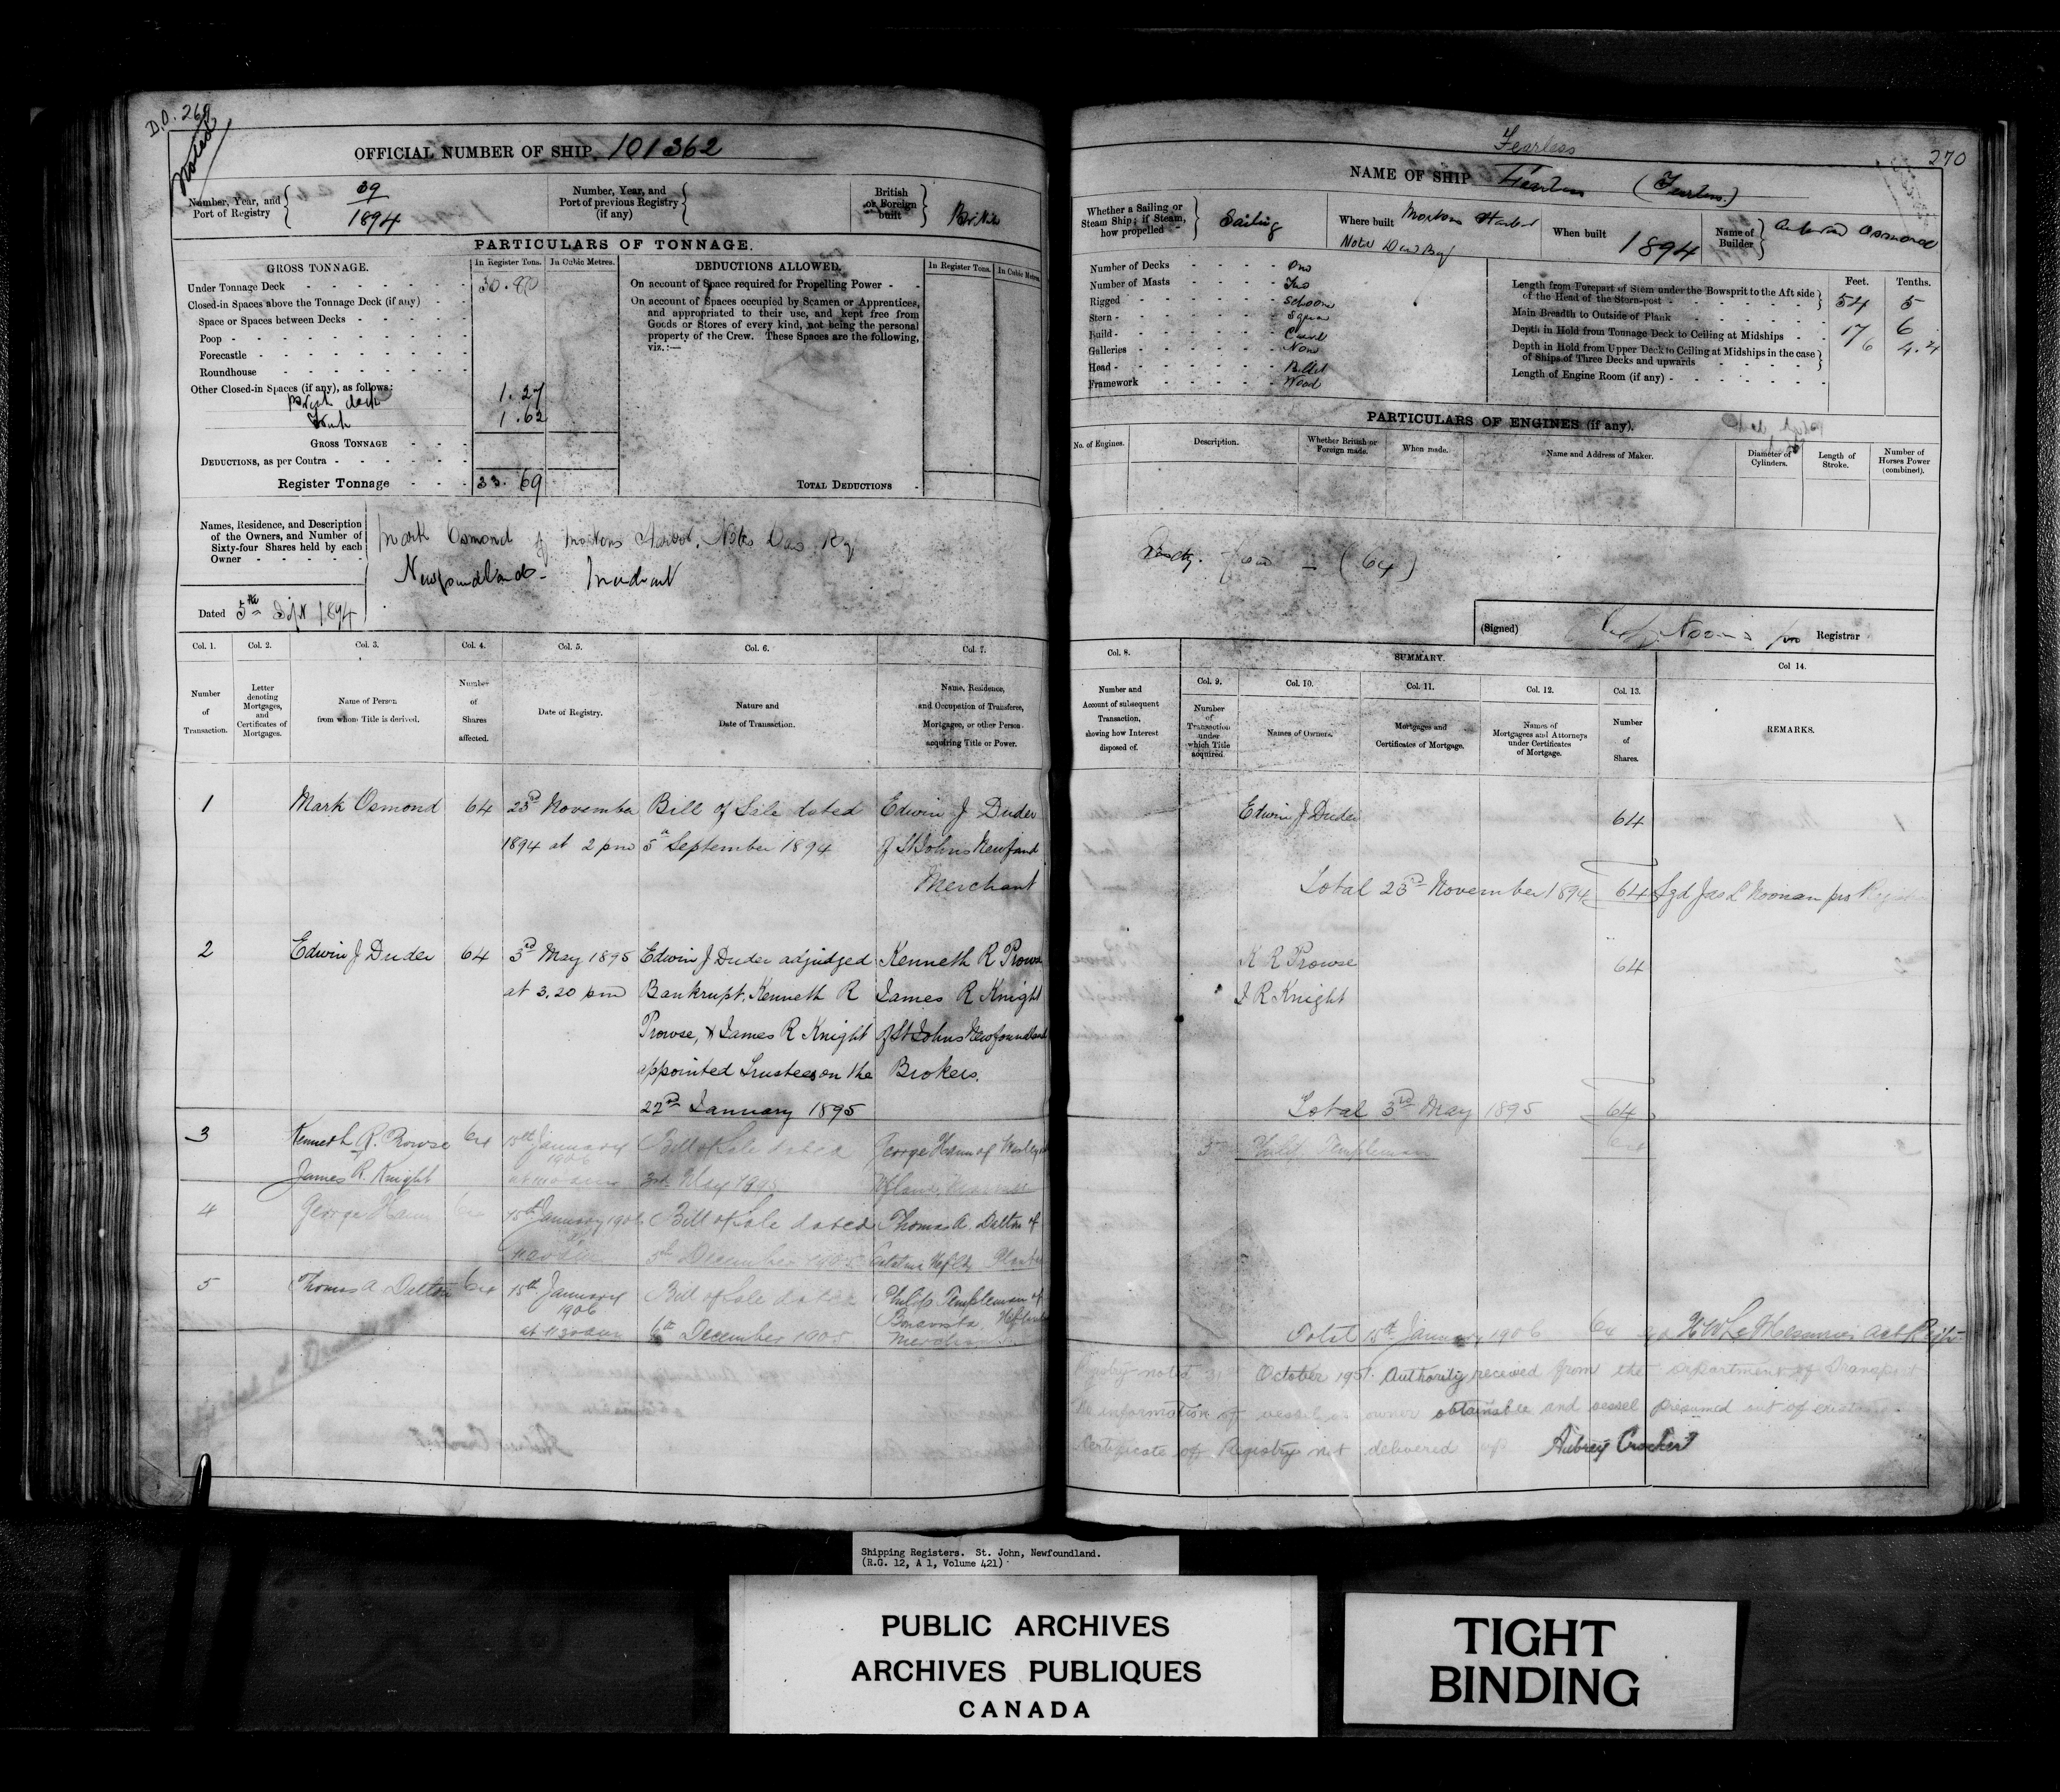 D.O. 269
Noted
OFFICIAL NUMBER OF SHIP 101362
Number, Year, and Port of Registry
39
1894
Number, Year, and Port of previous Registry (if any)
British or Foreign built
British
PARTICULARS OF TONNAGE.
GROSS TONNAGE.
In Register Tons.
In Cubic Metres.
DEDUCTIONS ALLOWED.
In Register Tons.
In Cubic Metres.
Under Tonnage Deck
30.80
Closed-in Spaces above the Tonnage Deck (if any)
Space or Spaces between Decks
Poop
Forecastle
Roundhouse
Other Closed-in Spaces (if any), as follows:
deck 1.27
1.62
GROSS TONNAGE
DEDUCTIONS, as per Contra
Register Tonnage 33.69
On account of Space required for Propelling Power
On account of Spaces occupied by Seamen or Apprentices,
and appropriated to their use, and kept free from
Goods or Stores of every kind, not being the personal
property of the Crew. These Spaces are the following,
viz.:—
TOTAL DEDUCTIONS
Names, Residence, and Description
of the Owners, and Number of
Sixty-four Shares held by each
Owner
Mark Osmond of Mortons Harbor, Notre Dame Bay
Newfoundland - Merchant
Dated 5th Sept 1894
Col. 1.
Number of Transaction.
Col. 2.
Letter denoting Mortgages, and Certificates of Mortgages.
Col. 3.
Name of Person from whom Title is derived.
Col. 4.
Number of Shares affected.
Col. 5.
Date of Registry.
Col. 6.
Nature and Date of Transaction.
Col. 7.
Name, Residence, and Occupation of Transferee, Mortgagee, or other Person acquiring Title or Power.
1 Mark Osmond 64 23rd November Bill of Sale dated Edwin J Duder
1894 at 2 pm 5th September 1894 of St Johns Newfand
Merchant
2 Edwin J Duder 64 3rd May 1895 Edwin J Duder adjudged Kenneth R Prowse
at 3.20 pm Bankrupt. Kenneth R James R Knight
Prowse, & James R Knight of St Johns Newfoundland
appointed Trustees on the Brokers.
22nd January 1895
3 Kenneth R. Prowse 64 15th January 1906 Bill of Sale dated George Hann of
James R. Knight 3rd May 1895
4 George Hann 64 15th January 1906 Bill of Sale dated Thomas A. Dalton of
5th December 1905 Catalina Nfld
5 Thomas A Dalton 64 15th January Bill of Sale dated Philip Templeman of
1906 Bonavista
at 11 30 am 6th December 1905 Merchant
Fearless
270
NAME OF SHIP Fearless (Fearless.)
Whether a Sailing or Steam Ship; if Steam, how propelled
Sailing
Where built Mortons Harbor
Notre Dame Bay
When built 1894
Name of Builder
Osmond
Number of Decks One
Number of Masts Two
Rigged Schooner
Stern Square
Build Carvel
Galleries None
Head Billet
Framework Wood
Feet. Tenths.
Length from Forepart of Stem under the Bowsprit to the Aft side
of the Head of the Stern-post 54 5
Main Breadth to Outside of Plank 17 6
Depth in Hold from Tonnage Deck to Ceiling at Midships 6 4.24
Depth in Hold from Upper Deck to Ceiling at Midships in the case
of Ships of Three Decks and upwards
Length of Engine Room (if any)
PARTICULARS OF ENGINES (if any).
No. of Engines.
Description.
Whether British or Foreign made.
When made.
Name and Address of Maker.
Diameter of Cylinders.
Length of Stroke.
Number of Horses Power (combined).
Sixty four - (64)
(Signed) Noonan pro Registrar
Col. 8.
Number and Account of subsequent Transaction, showing how Interest disposed of.
SUMMARY.
Col. 9.
Number of Transaction under which Title acquired
Col. 10.
Names of Owners.
Col. 11.
Mortgages and Certificates of Mortgage.
Col. 12.
Names of Mortgagees and Attorneys under Certificates of Mortgage.
Col. 13.
Number of Shares.
Col 14.
REMARKS.
Edwin J Duder 64
Total 23rd November 1894 64 Sgd Jas L Noonan pro Registrar
K R Prowse 64
J R Knight
Total 3rd May 1895 64
5 Philip Templeman 64
Total 15th January 1906 64
Registry noted 31st October 1951. Authority received from the Department of Transport
No information of vessel or owner obtainable and vessel presumed out of existence.
Certificate of Registry not delivered up Aubrey Crocker
Shipping Registers. St. John, Newfoundland.
(R.G. 12, A 1, Volume 421)
PUBLIC ARCHIVES
ARCHIVES PUBLIQUES
CANADA
TIGHT
BINDING